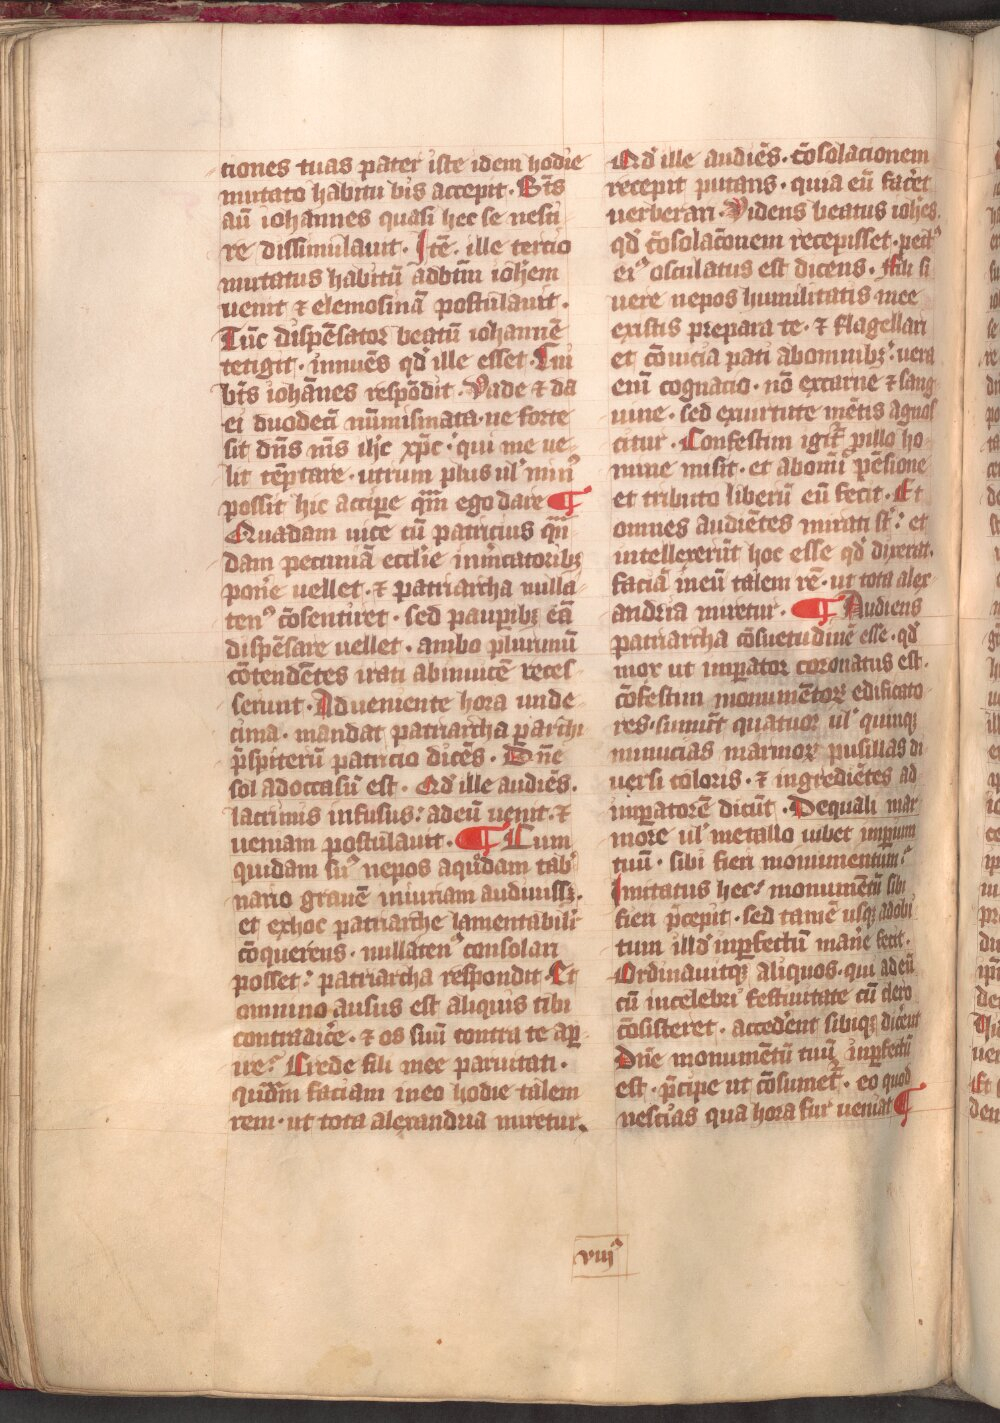 tiones tuas pater iste idem hodie
mutato habitu bis accepit. Bt̄s
aū iohannes quasi hec se nesci
re dissimulauit. Itē. ille tercio
mutatus habitū ad btm̄ ioh̄em
uenit ⁊ elemosinā postulauit.
Tūc dispēsator beatū iohannē
tetigit. innuēs qd ille esset. Cui
bt̄s iohānes respōdit. Vade ⁊ da
ei duodecī nūmismata. ne forte
sit dn̄s nr̄s ih̄c xp̄c. qui me ue
lit tēptare. utrum plus ul' min⁹
possit hic accipe qm̄ ego dare ¶
Quadam uice cū patricius qn̄
dam pecuniā eccl'ie in m̄catoribꝫ
pon̄e uellet. ⁊ patriarcha nulla
ten⁹ cōsentiret. sed paupibꝫ eā
dispēsare uellet. ambo plurimū
cōtendētes irati abinuicē reces
serunt. Adueniente hora unde
cima. mandat patriarcha p archi
p̄sbiterū patricio dicēs. Dn̄e
sol ad occasū est. Qd ille audiēs.
lacrimis infusus: ad eū uenit. ⁊
ueniam postulauit. ¶ Cum
quidam su⁹ nepos a quodam tab̾
nario grauē iniuriam audiuissꝫ.
et ex hoc patriarche lamentabili
cōquerens. nullaten⁹ consolari
posset: patriarcha respondit. Et
omnino ausus est aliquis tibi
contradic̄e. ⁊ os suū contra te apꝑ
ire? Crede fili mee paruitati.
quidm̄ faciam in eo hodie talem
rem. ut tota alexandria miretur.
Qd ille audiēs. cōsolacionem
recepit putans. quia eū facēt
uerberari. Videns beatus ioh̄es.
qd cōsolac̄onem recepisset. pect⁹
ei⁹ osculatus est dicens. Fili si
uere nepos humilitatis mee
existis prepara te. ⁊ flagellari
et cōuicia pati ab omnibꝫ. uera
enī cognacio. nō ex carne ⁊ sang
uine. sed ex uirtute mētis agnos
citur. Confestim igit̄ p illo ho
mine misit. et ab omī pēsione
et tributo liberū eū fecit. Et
omnes audiētes mirati st̄: et
intellexerūt hoc esse qd dixerat.
faciā in eū talem rē. ut tota alex
andria miretur. ¶ Audiens
patriarcha cōsuetudinē esse. qd
mox ut impator coronatus est.
cōfestim monumētoꝝ edificato
res. sumūt quatuor ul' quinqꝫ
minucias marmoꝝ pusillas di
uersi coloris. ⁊ ingrediētes ad
impatorē dicūt. De quali mar
more ul' metallo iubet impium
tuū. sibi fieri monumentum?
Imitatus hec: monumētū sibi
fieri p̄cepit. sed tamē usqꝫ ad obi
tum illd imperfectū man̄e fecit.
Ordinauitqꝫ aliquos. qui ad eū
cū in celebri festiuitate cū clero
cōsisteret. accedent sibiqꝫ dic̄ent
Dn̄e monumētū tuū inperfectū
est. p̄cipe ut cōsumet̄. eo quod
nescias qua hora fur ueniat ¶
viij